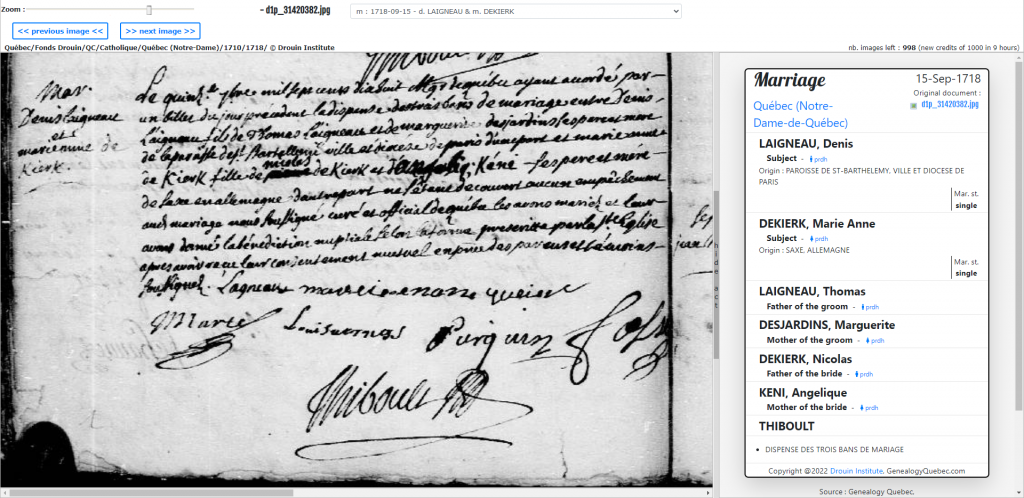 Zoom :
- d1p_31420382.jpg
m : 1718-09-15 - d. LAIGNEAU & m. DEKIERK
<< previous image <<
>> next image >>
Québec/Fonds Drouin/QC/Catholique/Québec (Notre-Dame)/1710/1718/ © Drouin Institute
nb. images left : 998 (new credits of 1000 in 9 hours)
Mar.
Denis Laigneau
et
marie anne de
Kierk.
Le quinze 7bre mil sept cents dixhuit Mgr de quebec ayant acordé par
un billet du jour précédent la dispense des trois bans de mariage entre Denis
Laigneau fils de Thomas Laigneau et de marguerite desjardins les pere et mere
de la paroisse de st Barthellemi ville et diocese de paris d'une part et marie anne
de Kierk fille de nicolas de Kierk et d'angelique Kéné les pere et mere
de saxe en allemagne d'autre part ne s'étant decouvert aucun empêchement
aud mariage nous soussigné curé et official de quebec les avons mariés et leur
avons donné la bénédiction nuptiale selon la forme prescrite par la ste Eglise
apres avoir receu leur consentement mutuel en presence des parens et témoins
soussignez. Lagneau marie anne
Thiboult
Marriage
15-Sep-1718
Original document :
d1p_31420382.jpg
Québec (Notre-
Dame-de-Québec)
LAIGNEAU, Denis
Subject - prdh
Origin : PAROISSE DE ST-BARTHELEMY, VILLE ET DIOCESE DE
PARIS
Mar. st.
single
DEKIERK, Marie Anne
Subject - prdh
Origin : SAXE, ALLEMAGNE
Mar. st.
single
LAIGNEAU, Thomas
Father of the groom - prdh
DESJARDINS, Marguerite
Mother of the groom - prdh
DEKIERK, Nicolas
Father of the bride - prdh
KENI, Angelique
Mother of the bride - prdh
THIBOULT
• DISPENSE DES TROIS BANS DE MARIAGE
Copyright @2022 Drouin Institute, GenealogyQuebec.com
Source : Genealogy Quebec,